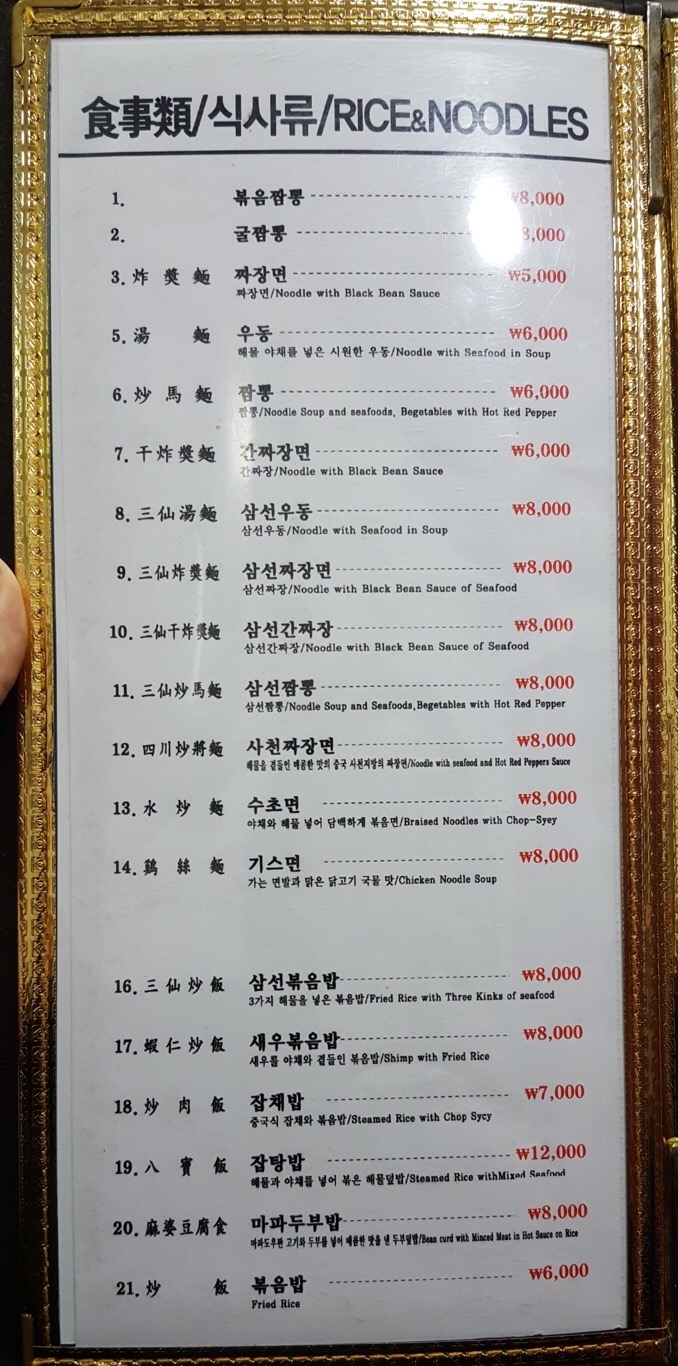 食事類/식사류/RICE&NOODLES
1. 볶음짬뽕 ₩8,000
2. 굴짬뽕 8,000
3. 炸奬麵 짜장면 ₩5,000
짜장면/Noodle with Black Bean Sauce
5. 湯麵 우동 ₩6,000
해물 야채를 넣은 시원한 우동/Noodle with Seafood in Soup
6. 炒馬麵 짬뽕 ₩6,000
짬뽕/Noodle Soup and seafoods, Begetables with Hot Red Pepper
7. 干炸奬麵 간짜장면 ₩6,000
간짜장/Noodle with Black Bean Sauce
8. 三仙湯麵 삼선우동 ₩8,000
삼선우동/Noodle with Seafood in Soup
9. 三仙炸奬麵 삼선짜장면 ₩8,000
삼선짜장/Noodle with Black Bean Sauce of Seafood
10. 三仙干炸奬麵 삼선간짜장 ₩8,000
삼선간짜장/Noodle with Black Bean Sauce of Seafood
11. 三仙炒馬麵 삼선짬뽕 ₩8,000
삼선짬뽕/Noodle Soup and Seafoods,Begetables with Hot Red Pepper
12. 四川炒將麵 사천짜장면 ₩8,000
해물을 곁들인 매콤한 맛의 중국 사천지방의 짜장면/Noodle with seafood and Hot Red Peppers Sauce
13. 水炒麵 수초면 ₩8,000
야채와 해물 넣어 담백하게 볶음면/Braised Noodles with Chop-Syey
14. 鷄絲麵 기스면 ₩8,000
가는 면발과 맑은 닭고기 국물 맛/Chicken Noodle Soup
16. 三仙炒飯 삼선볶음밥 ₩8,000
3가지 해물을 넣은 볶음밥/Fried Rice with Three Kinks of seafood
17. 蝦仁炒飯 새우볶음밥 ₩8,000
새우를 야채와 곁들인 볶음밥/Shimp with Fried Rice
18. 炒肉飯 잡채밥 ₩7,000
중국식 잡채와 볶음밥/Steamed Rice with Chop Sycy
19. 八寶飯 잡탕밥 ₩12,000
해물과 야채를 넣어 볶은 해물덮밥/Steamed Rice withMixed Seafood
20. 麻婆豆腐食 마파두부밥 ₩8,000
마파도우란 고기와 두부를 넣어 매콤한 맛을 낸 두부덮밥/Bean curd with Minced Meat in Hot Sauce on Rice
21. 炒飯 볶음밥 ₩6,000
Fried Rice